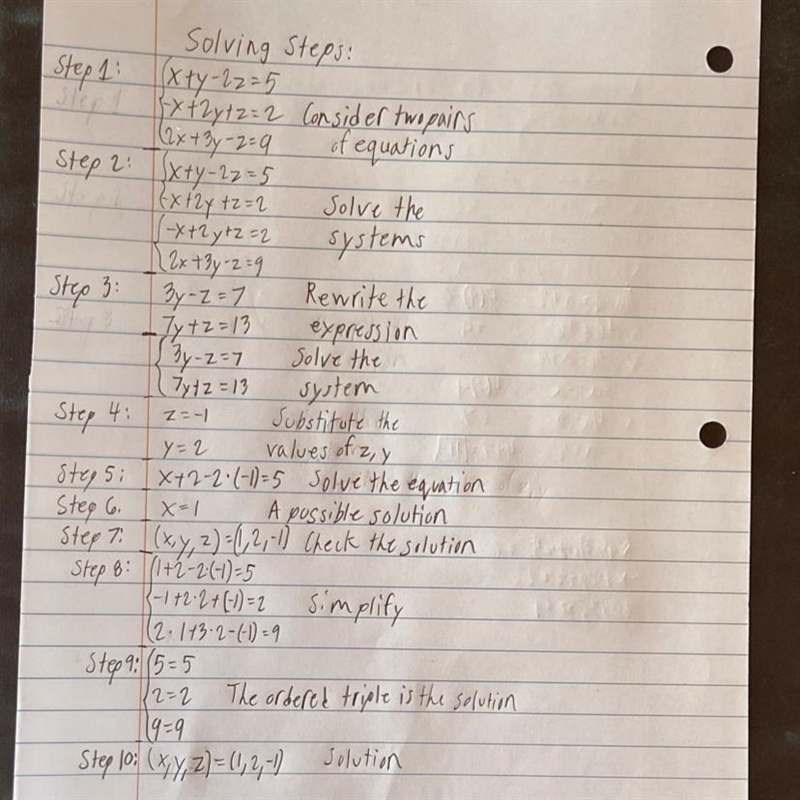 Solving Steps:
Step 1: {x+y-2z=5
Step 1 {-x+2y+z=2 Consider two pairs
{2x+3y-z=9 of equations
Step 2: {x+y-2z=5
{-x+2y+z=2 Solve the
{-x+2y+z=2 systems
{2x+3y-z=9
Step 3: 3y-z=7 Rewrite the
7y+z=13 expression
{3y-z=7 Solve the
{7y+z=13 system
Step 4: z=-1 Substitute the
y=2 values of z, y
Step 5: x+2-2·(-1)=5 Solve the equation
Step 6. x=1 A possible solution
Step 7: (x,y,z)=(1,2,-1) Check the solution
Step 8: {1+2-2·(-1)=5
{-1+2·2+(-1)=2 Simplify
{2·1+3·2-(-1)=9
Step 9: {5=5
{2=2 The ordered triple is the solution
{9=9
Step 10: (x,y,z)=(1,2,-1) Solution